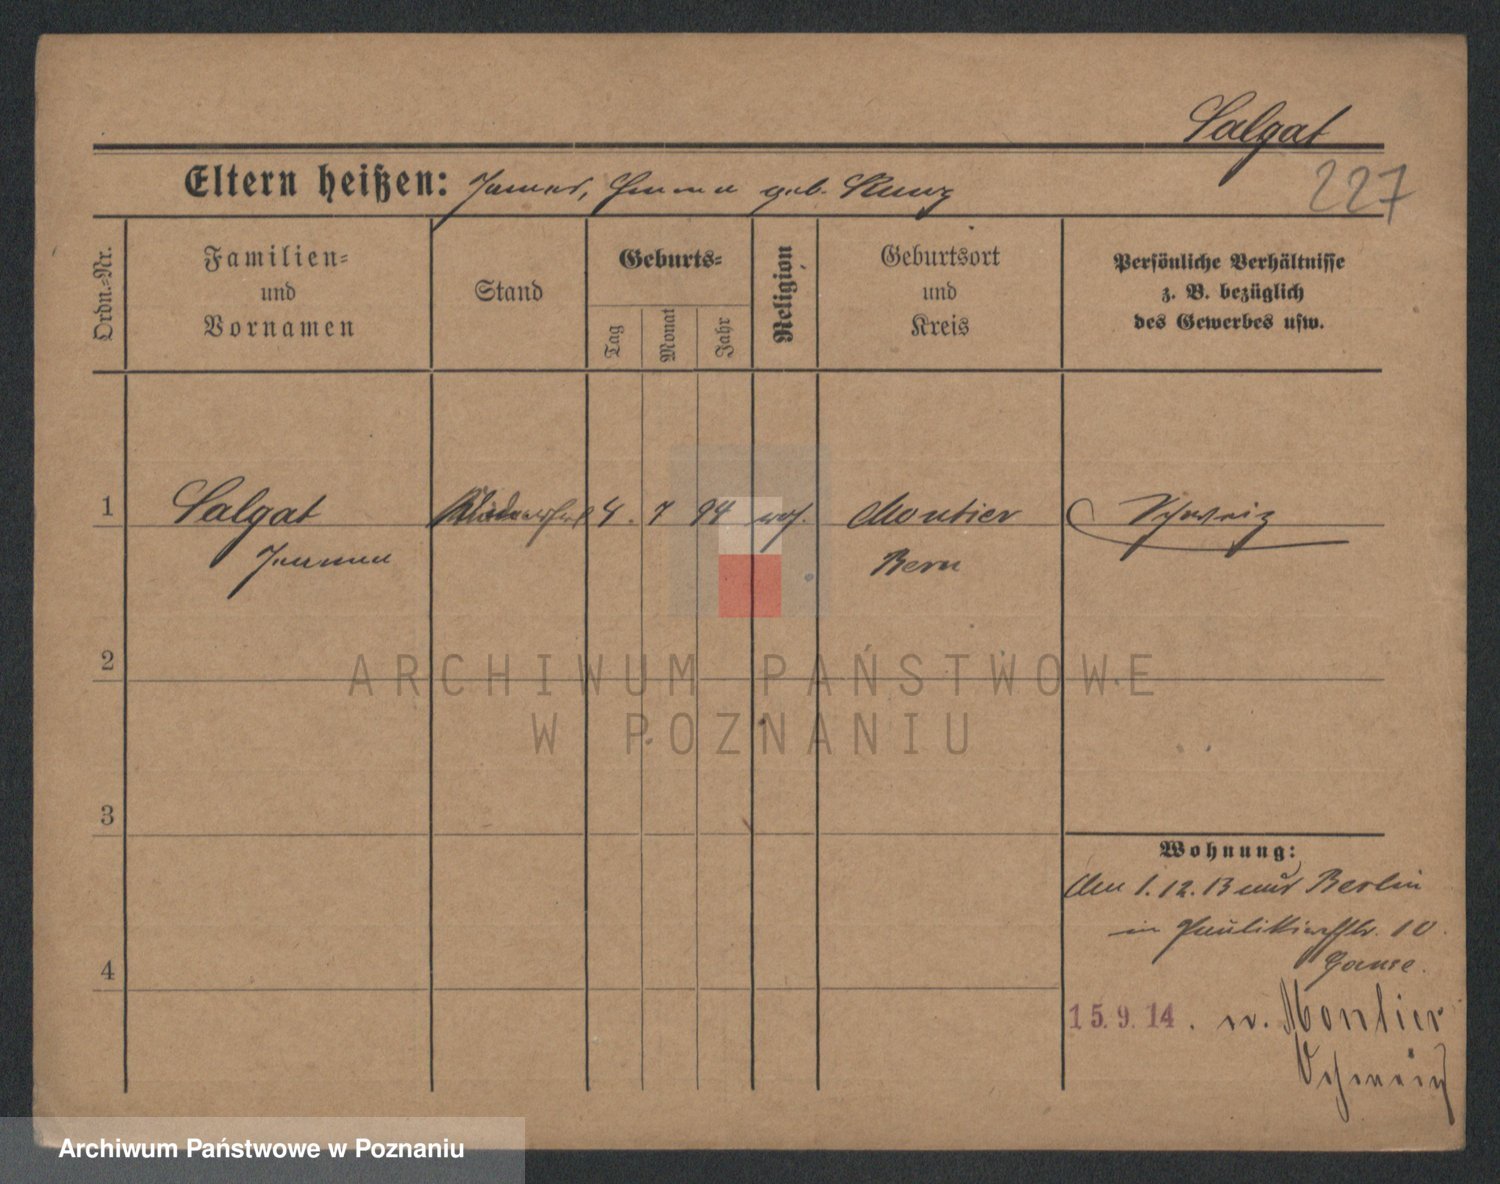 Salgat
227
Eltern heißen: James, Emma geb. Kunz
Ordn.-Nr.
Familien-
und
Vornamen
Stand
Geburts-
Tag
Monat
Jahr
Religion
Geburtsort
und
Kreis
Persönliche Verhältnisse
z. B. bezüglich
des Gewerbes usw.
1 Salgat 4. 7 94 Moutier Schweiz
Bern
2
3
4
Wohnung:
Am 1. 12. 13 aus Berlin
in Paulikirchstr. 10.
15. 9. 14. n. Moutier
Schweiz
ARCHIWUM PAŃSTWOWE
W POZNANIU
Archiwum Państwowe w Poznaniu